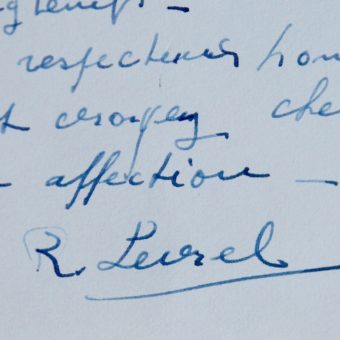 respectueux hom
et croyez che
affection —
R. Levrel